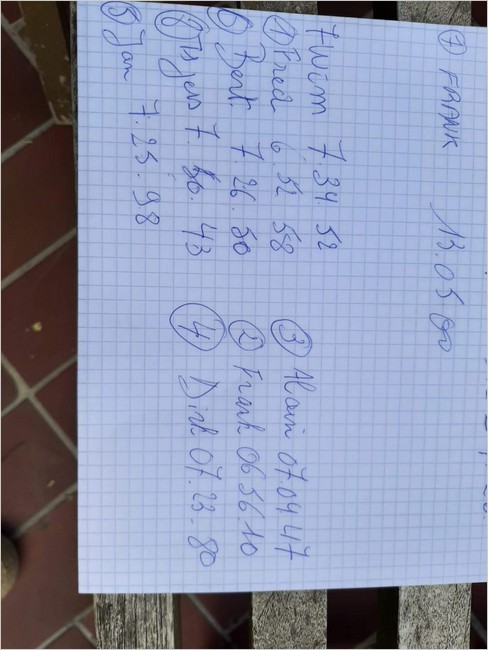 ① FRANK 13.05
7 Wim 7 34 52
① Fred 6 52 58
⑥ Bert 7.26.50
⑧ 7. 43
⑤ Jan 7.25.98
③ Alain 07.04 47
② Frank 06 56.10
④ Dirk 07.23.80